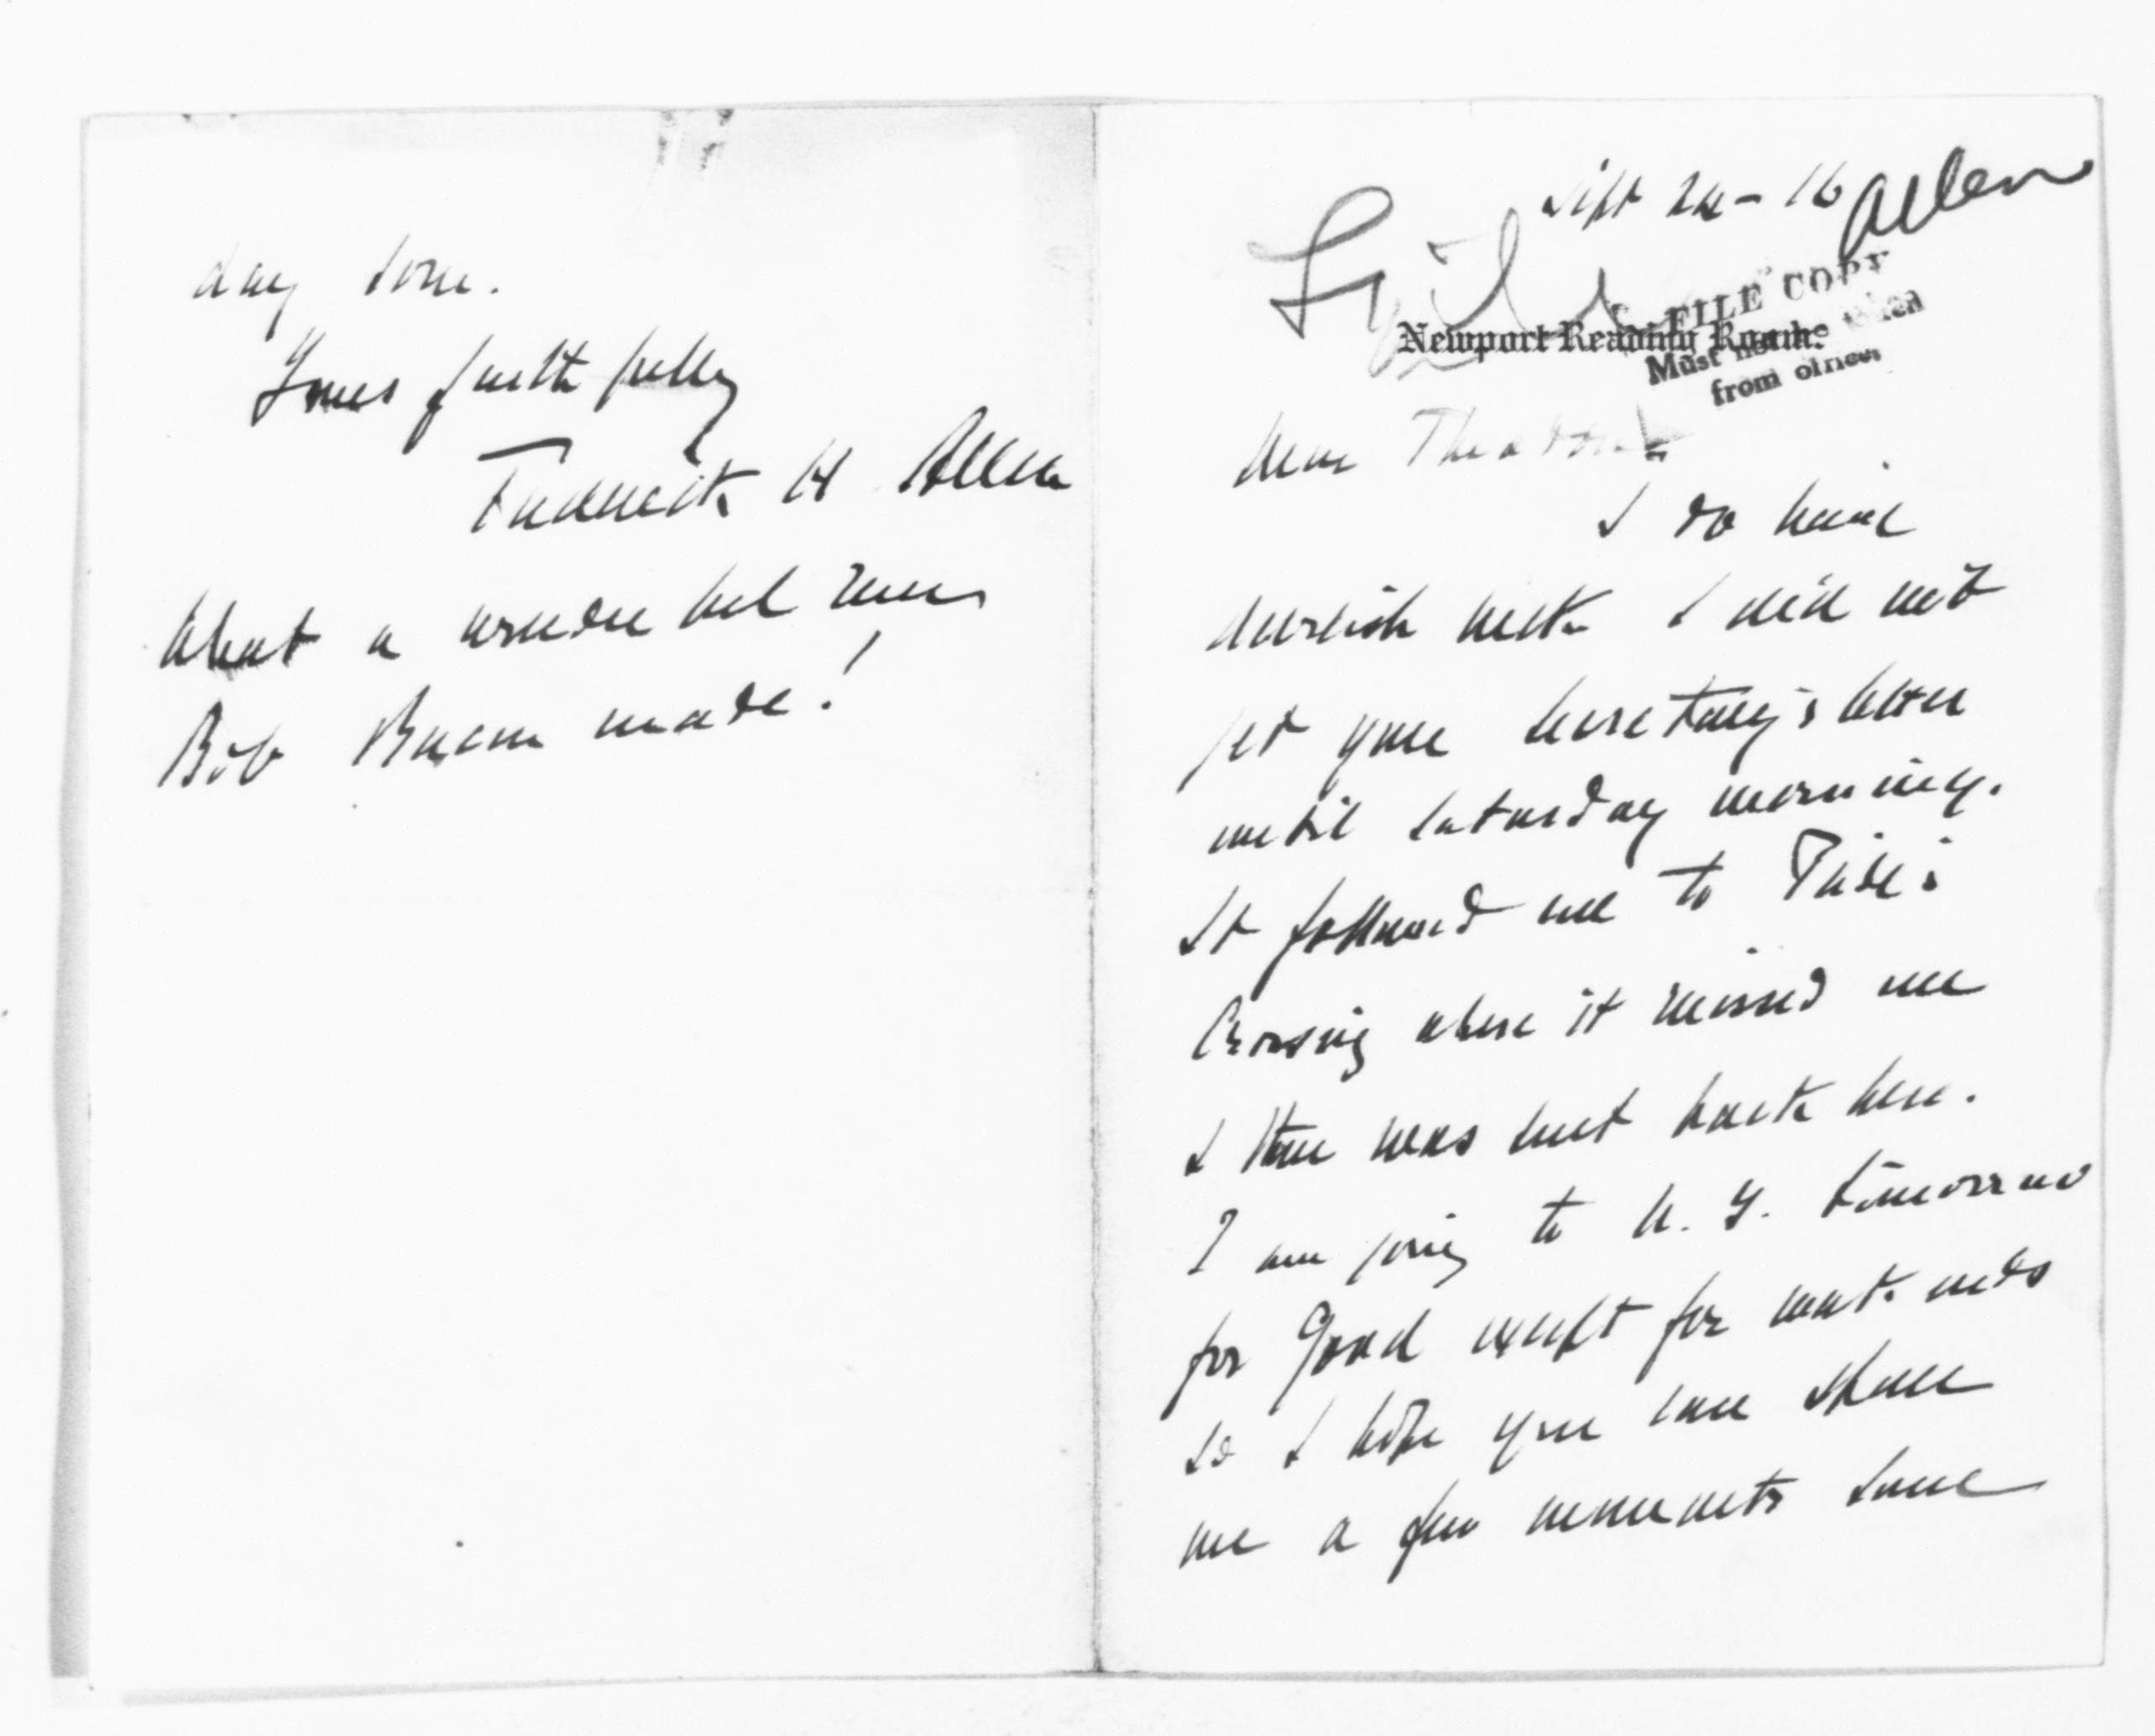 Sept 24 - 16
Allen
"FILE COPY"
Newport Reading Room.
Must not be taken
from office.
Dear Theodore
I do have
devilish luck I did not
get your Secretary's letter
until Saturday morning.
It followed me to Pride's
Crossing where it missed me
& then was sent back here.
I am going to N. Y. tomorrow
for good except for week ends
so I hope you can spare
me a few moments some
day soon.
Yours faithfully
Frederick H Allen
What a wonderful run
Bob Bacon made!